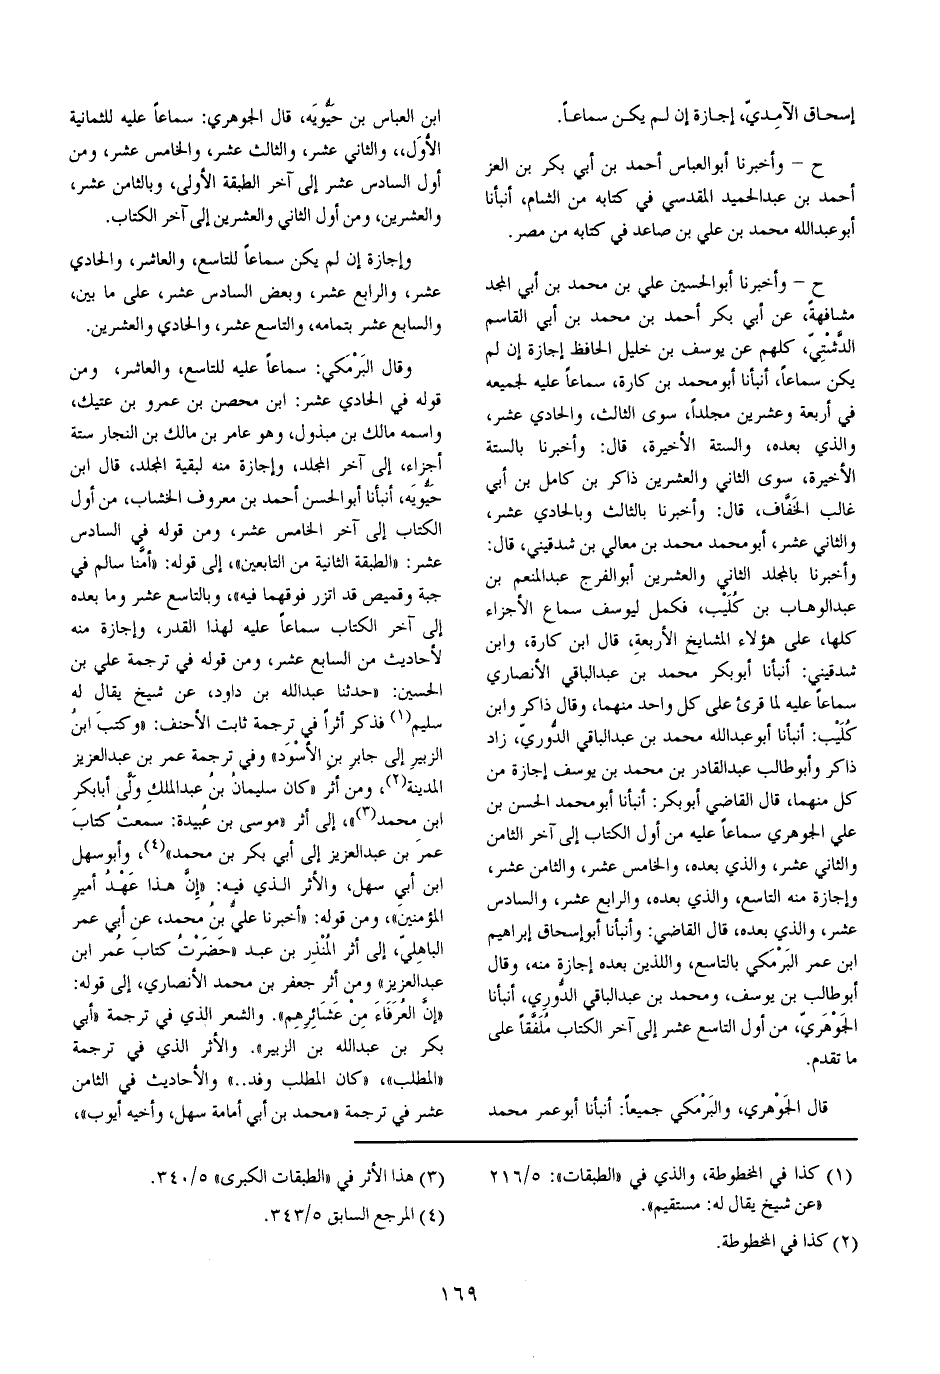 إسحاق الآمِديّ، إجازة إن لم يكن سماعاً.
ح – وأخبرنا أبوالعباس أحمد بن أبي بكر بن العز
أحمد بن عبدالحميد المقدسي في كتابه من الشام، أنبأنا
أبوعبدالله محمد بن علي بن صاعد في كتابه من مصر.
ح – وأخبرنا أبوالحسين علي بن محمد بن أبي المجد
مشافهةً، عن أبي بكر أحمد بن محمد بن أبي القاسم
الدَّشْتِيّ، كلهم عن يوسف بن خليل الحافظ إجازة إن لم
يكن سماعاً، أنبأنا أبومحمد بن كارة، سماعاً عليه لجميعه
في أربعة وعشرين مجلداً، سوى الثالث، والحادي عشر،
والذي بعده، والستة الأخيرة، قال: وأخبرنا بالستة
الأخيرة، سوى الثاني والعشرين ذاكر بن كامل بن أبي
غالب الخَفَّاف، قال: وأخبرنا بالثالث وبالحادي عشر،
والثاني عشر، أبومحمد محمد بن معالي بن شدقيني، قال:
وأخبرنا بالمجلد الثاني والعشرين أبوالفرج عبدالمنعم بن
عبدالوهاب بن كُلَيْب، فكمل ليوسف سماع الأجزاء
كلها، على هؤلاء المشايخ الأربعةِ، قال ابن كارة، وابن
شدقيني: أنبأنا أبوبكر محمد بن عبدالباقي الأنصاري
سماعاً عليه لما قرئ على كل واحد منهما، وقال ذاكر وابن
كُلَيْب: أنبأنا أبوعبدالله محمد بن عبدالباقي الدُّوريّ، زاد
ذاكر وأبوطالب عبدالقادر بن محمد بن يوسف إجازة من
كل منهما، قال القاضي أبوبكر: أنبأنا أبومحمد الحسن بن
علي الجوهري سماعاً عليه من أول الكتاب إلى آخر الثامن
والثاني عشر، والذي بعده، والخامس عشر، والثامن عشر،
وإجازة منه التاسع، والذي بعده، والرابع عشر، والسادس
عشر، والذي بعده، قال القاضي: وأنبأنا أبوإسحاق إبراهيم
ابن عمر البَرْمَكي بالتاسع، واللذين بعده إجازة منه، وقال
أبوطالب بن يوسف، ومحمد بن عبدالباقي الدُّوري، أنبأنا
الجَوْهَريّ، من أول التاسع عشر إلى آخر الكتاب مُلَفَّقاً على
ما تقدم.
قال الجَوْهري، والبَرْمَكي جميعاً: أنبأنا أبوعمر محمد
ابن العباس بن حَيُّويَه، قال الجوهري: سماعاً عليه للثمانية
الأُوَل،، والثاني عشر، والثالث عشر، والخامس عشر، ومن
أول السادس عشر إلى آخر الطبقة الأولى، وبالثامن عشر،
والعشرين، ومن أول الثاني والعشرين إلى آخر الكتاب.
وإجازة إن لم يكن سماعاً للتاسع، والعاشر، والحادي
عشر، والرابع عشر، وبعض السادس عشر، على ما بين،
والسابع عشر بتمامه، والتاسع عشر، والحادي والعشرين.
وقال البَرْمَكي: سماعاً عليه للتاسع، والعاشر، ومن
قوله في الحادي عشر: ابن محصن بن عمرو بن عتيك،
واسمه مالك بن مبذول، وهو عامر بن مالك بن النجار ستة
أجزاء، إلى آخر المجلد، وإجازة منه لبقية المجلد، قال ابن
حَيُّويَه، أنبأنا أبوالحسن أحمد بن معروف الخشاب، من أول
الكتاب إلى آخر الخامس عشر، ومن قوله في السادس
عشر: «الطبقة الثانية من التابعين»، إلى قوله: «أمَّنا سالم في
جبة وقميص قد اتزر فوقهما فيه»، وبالتاسع عشر وما بعده
إلى آخر الكتاب سماعاً عليه لهذا القدر، وإجازة منه
لأحاديث من السابع عشر، ومن قوله في ترجمة علي بن
الحسين: «حدثنا عبدالله بن داود، عن شيخ يقال له
سليم(١) فذكر أثراً في ترجمة ثابت الأحنف: «وكتبَ ابنُ
الزبير إلى جابر بنِ الأسْوَد» وفي ترجمة عمر بن عبدالعزيز
المدينة(٢)، ومن أثر «كان سليمانُ بنُ عبدالملكِ ولَّى أبابكر
ابن محمد(٣)»، إلى أثر «موسى بن عُبيدة: سمعتُ كتابَ
عمرَ بن عبدالعزيز إلى أبي بكر بن محمد»(٤)، وأبوسهل
ابن أبي سهل، والأثر الذي فيه: «إنَّ هذا عَهْدُ أمير
المؤمنين»، ومن قوله: «أخبرنا عليُّ بنُ محمد، عن أبي عمر
الباهليّ، إلى أثر المُنْذِر بن عبد «حَضَرْتُ كتابَ عُمر ابن
عبدالعزيز» ومن أثر جعفر بن محمد الأنصاري، إلى قوله:
«إنَّ العُرَفَاءَ مِنْ عَشَائِرِهِم». والشعر الذي في ترجمة «أبي
بكر بن عبدالله بن الزبير». والأثر الذي في ترجمة
«المطلب»، «كان المطلب وفد..» والأحاديث في الثامن
عشر في ترجمة «محمد بن أبي أمامة سهل، وأخيه أيوب»،
(١) كذا في المخطوطة، والذي في «الطبقات»: ٢١٦/٥
«عن شيخ يقال له: مستقيم».
(٢) كذا في المخطوطة.
(٣) هذا الأثر في «الطبقات الكبرى» ٣٤٠/٥.
(٤) المرجع السابق ٣٤٣/٥.
١٦٩